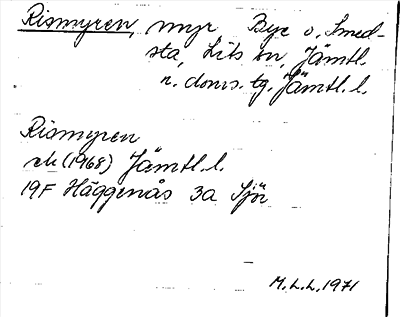 Rismyren, myr Bye o. Smed-
sta, Lits sn, Jämtl.
n. doms. tg. Jämtl. l.
Rismyren
ek (1968) Jämtl. l.
19F Häggenås 3a Sjör
M.L.L. 1971